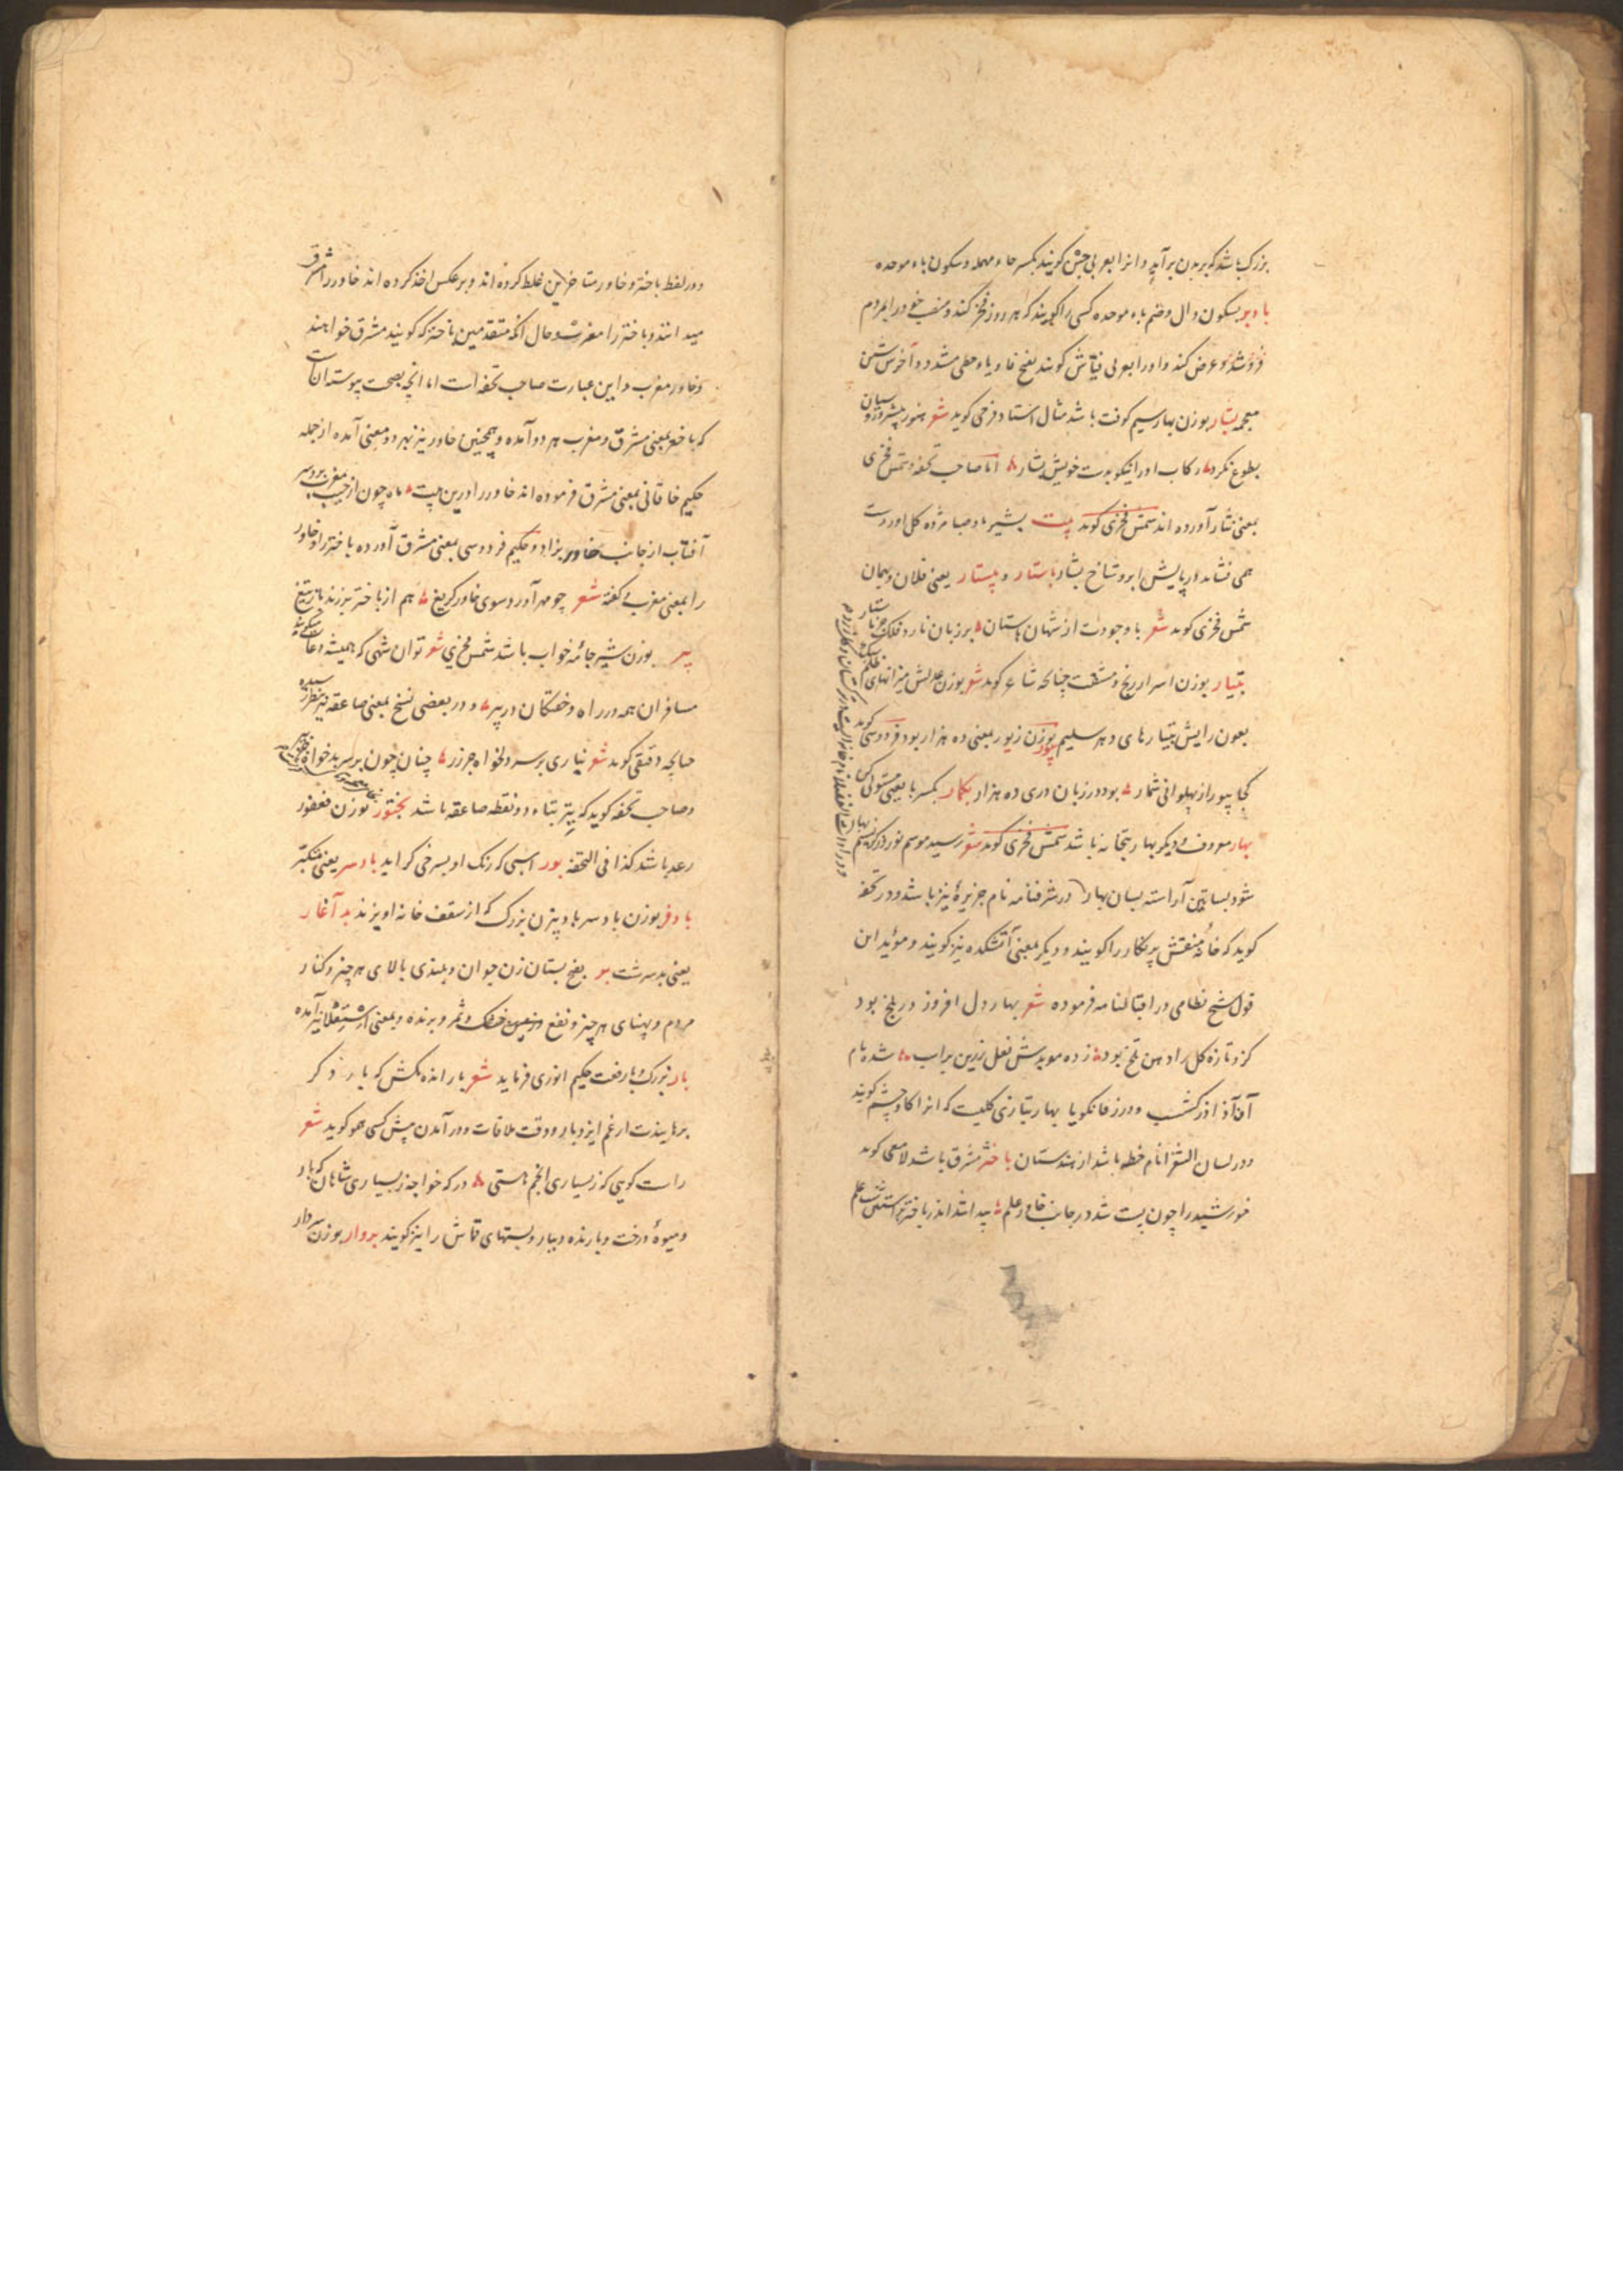 بزرک باشد که بر بدن برآید و انرا بعربی حبن کویند بکسر حاء مهمله و سکون باء موحده
بادبر بسکون دال و ضم باء موحده کسی را کویند که هر روز فخر کند و منصب خود را بمردم
فروشد و عرض کند و او را بعربی فیاش کویند بفتح فا و یاء حطی مشدد و آخرش شین
معجمه بشار بوزن بهار سیم کوفت باشد مثال استاد فرخی کوید شعر هنوز پیشرو روسیان
بطوع نکرد رکاب او را نیکو بدست خویش بشار اما صاحب تحفه و شمس فخری
بمعنی نثار آورده اند شمس فخری کوید بیت بشیر باد صبا مژده کل آوردست
همی فشاند در پایش ابر و شاخ بشار باستار و بیستار یعنی فلان و بهمان
شمس فخری کوید شعر با وجودت از شهان باستان بر زبان نارد فلک جز باستار
بتیار بوزن اسرار رنج و مشقت چنانچه شاعر کوید شعر بوزن عدلش میزانهای ظلم
بعون رایش بتیارهای دهر سلیم بیور بوزن زیور بمعنی ده هزار بود فردوسی کوید
کجا بیور از پهلوانی شمار بود در زبان دری ده هزار بکمار بکسر با یعنی مستولی
بهار معروف و دیکر بهار بتخانه باشد شمس فخری کوید شعر رسید موسم نوروز کز نسیم بهار
شود بساتین آراسته بسان بهار در شرفنامه نام جزیره نیز باشد و در تحفه
کوید که خانه منقش پرنکار را کویند و دیکر بمعنی آتشکده نیز کویند و مؤید این
قول شیخ نظامی در اقبالنامه فرموده شعر بهار دل افروز در بلخ بود
کزو تازه کل را دهن تلخ بود زده موبدش نعل زرین بر اسب شده نام
آن آذر آذرکشسب و در زفانکویا بهار بتازی کلیست که انرا کاوچشم کویند
و در لسان الشعرا نام خطه باشد از هندستان باختر مشرق باشد لامعی کوید
خورشید را چون پست شد در جانب خاور علم پیدا شد اندر باختر بر آستین شب علم
و در لفظ باختر و خاور متاخرین غلط کرده اند و بر عکس اخذ کرده اند خاور را مشرق
میدانند و باختر را مغرب و حال آنکه متقدمین باختر که کویند مشرق خواهند
و خاور مغرب و این عبارت صاحب تحفه است اما آنچه بصحت پیوسته آنست
که باختر بمعنی مشرق و مغرب هر دو آمده و همچنین خاور نیز بهر دو معنی آمده از جمله
حکیم خاقانی بمعنی مشرق فرموده اند خاور را درین بیت ماه چون از جیب مغرب برد سر
آفتاب از جانب خاور بزاد و حکیم فردوسی بمعنی مشرق آورده باختر را و خاور
را بمعنی مغرب کفته شعر چو مهر آورد سوی خاور کریغ هم از باختر برزند باز تیغ
بیر بوزن شیر جامه خواب باشد شمس فخری شعر توان شهی که همیشه دعات میکویند
مسافران همه در راه و خفتکان در بیر و در بعضی نسخ بمعنی صاعقه نیز بنظر رسیده
چنانچه دقیقی کوید شعر نباری بر سر دلخواه جز زر چنان چون بر سر بدخواه جز بیر
و صاحب تحفه کوید که بیتر بتاء دو نقطه صاعقه باشد بختور بوزن فغفور
رعد باشد کذا فی التحفه بور اسبی که رنک او بسرخی کراید بادسر یعنی متکبر
بادفر بوزن بادسر بادبیزن بزرک که از سقف خانه آویزند بدآغار
یعنی بدسرشت بر بفتح پستان زن جوان و بلندی بالای هر چیز و کنار
مردم و پهنای هر چیز و نفع و زمین خشک و ثمر و برنده و بمعنی استعلا نیز آمده
بار بزرک و بارفعت حکیم انوری فرماید شعر بار انده مکش که بار دکر
برهاندت از غم ایزد بار و وقت ملاقات و درآمدن پیش کسی همو کوید شعر
راست کویی که ز بسیاری انجم هستی درکه خواجه ز بسیاری شاهان که بار
و میوه درخت و بارنده و بیار و بستهای قماش را نیز کویند بروار بوزن